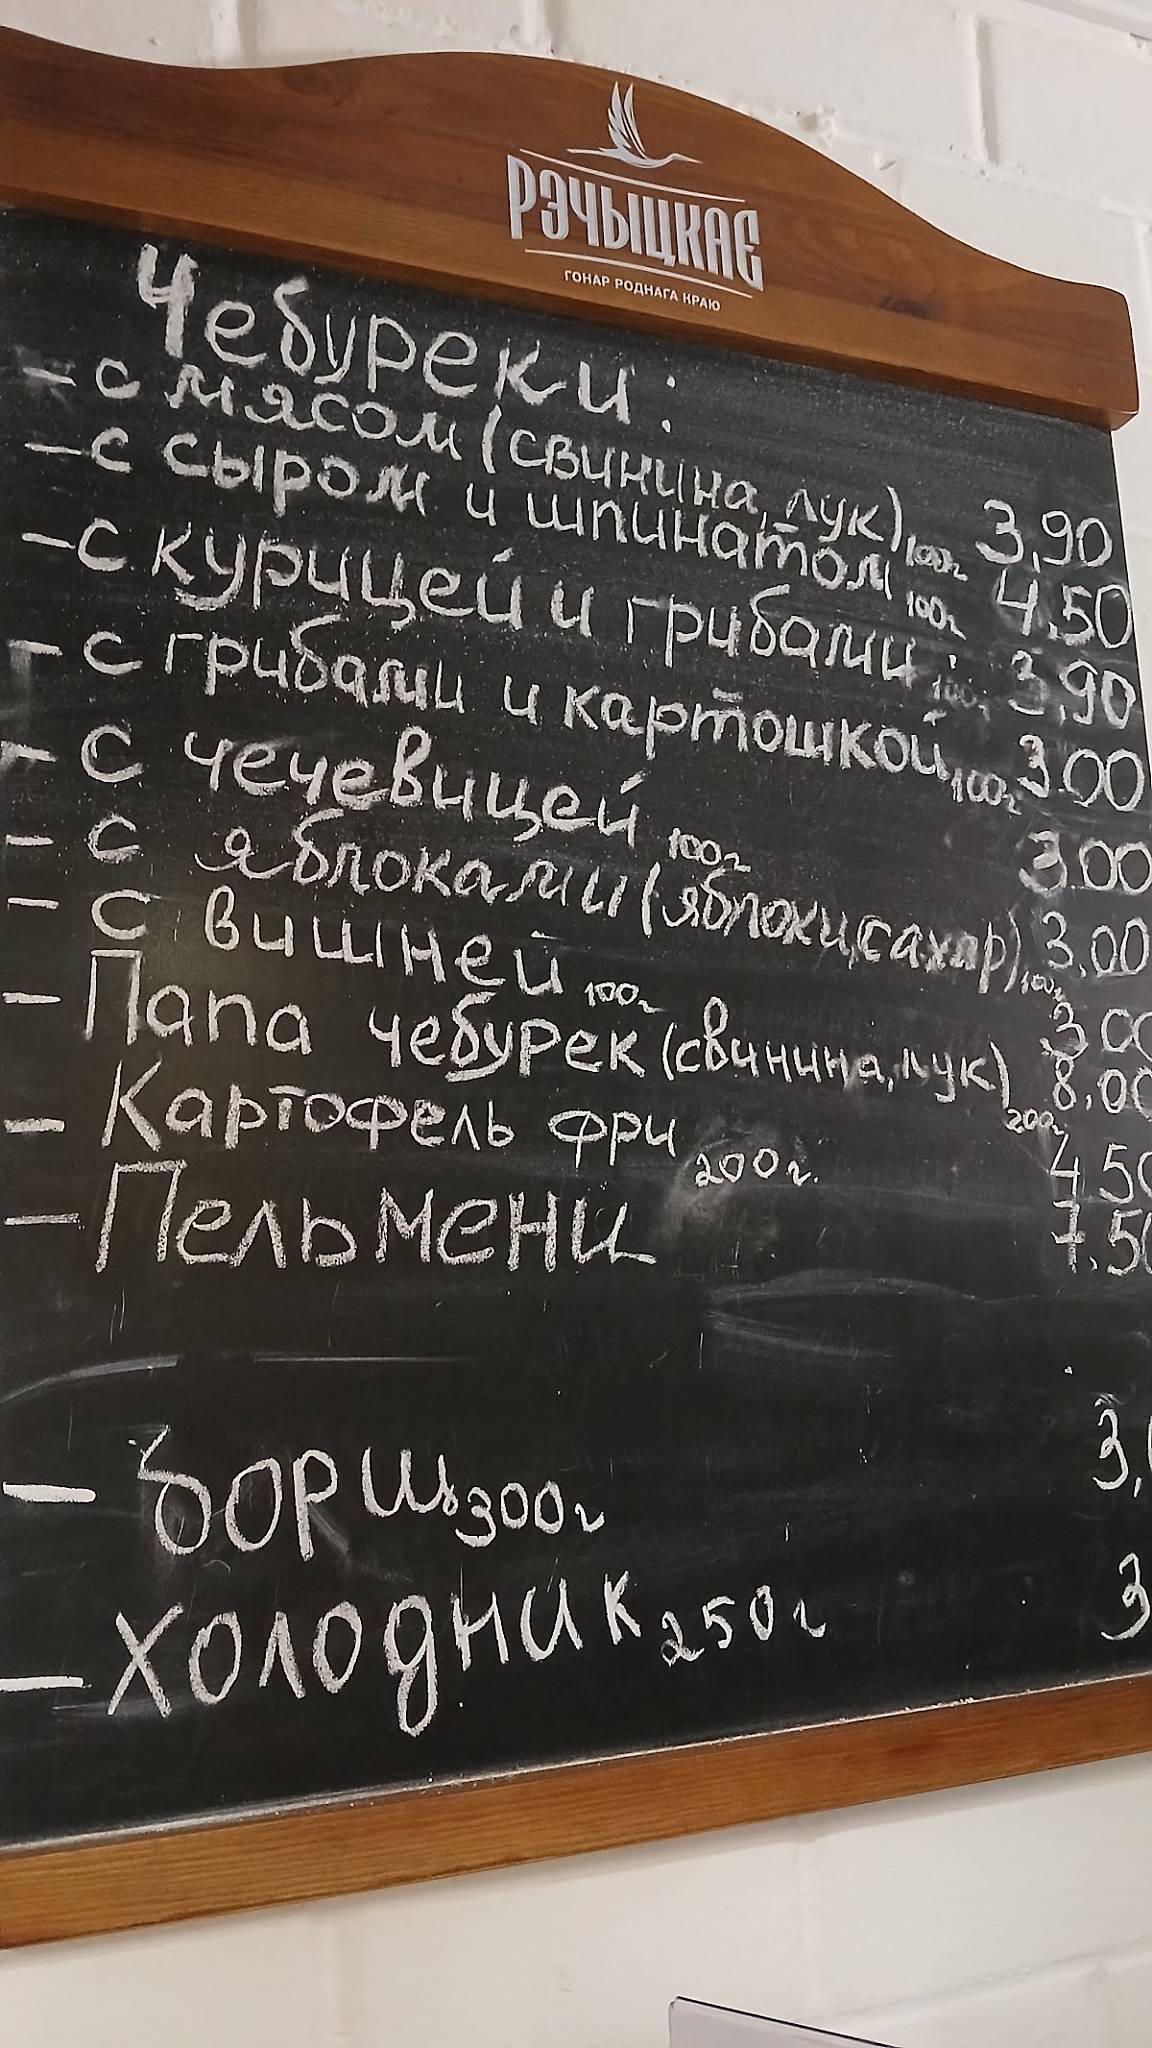 РЭЧЫЦКАЕ
ГОНАР РОДНАГА КРАЮ
Чебуреки:
- с мясом (свинина, лук) 100г 3,90
- с сыром и шпинатом 100г 4.50
- с курицей и грибами 100г 3,90
- с грибами и картошкой 100г 3.00
- с чечевицей 100г 3.00
- с яблоками (яблоки, сахар) 100г 3.00
- с вишней 100г 3.00
- Папа чебурек (свинина, лук) 200г 8.00
- Картофель фри 200г. 4.50
- Пельмени 7.50
- борщ 300г 3,
- холодник 250г 3